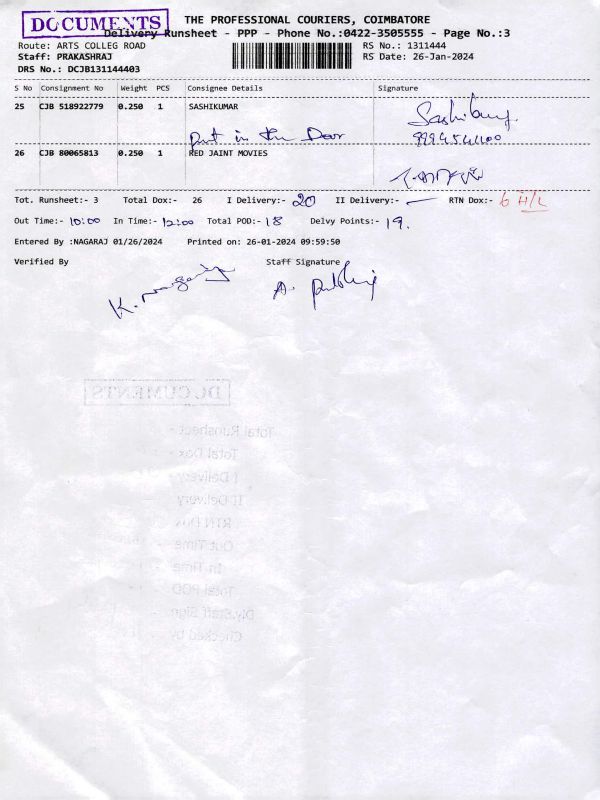 DOCUMENTS
THE PROFESSIONAL COURIERS, COIMBATORE
Delivery Runsheet - PPP - Phone No.:0422-3505555 - Page No.:3
Route: ARTS COLLEG ROAD
RS No.: 1311444
Staff: PRAKASHRAJ
RS Date: 26-Jan-2024
DRS No.: DCJB131144403
S No Consignment No Weight PCS Consignee Details Signature
25 CJB 518922779 0.250 1 SASHIKUMAR
put in the Door
26 CJB 80065813 0.250 1 RED JAINT MOVIES
Tot. Runsheet:- 3 Total Dox:- 26 I Delivery:- 20 II Delivery:- — RTN Dox:- 6 H/L
Out Time:- 10:00 In Time:- 12:00 Total POD:- 18 Delvy Points:- 19.
Entered By :NAGARAJ 01/26/2024 Printed on: 26-01-2024 09:59:50
Verified By Staff Signature
DOCUMENTS
Total Runsheet -
Total Dox -
I Delivery -
II Delivery
RTN Dox
Out Time -
In Time -
Total POD -
Dly.Staff Sign -
Checked by -